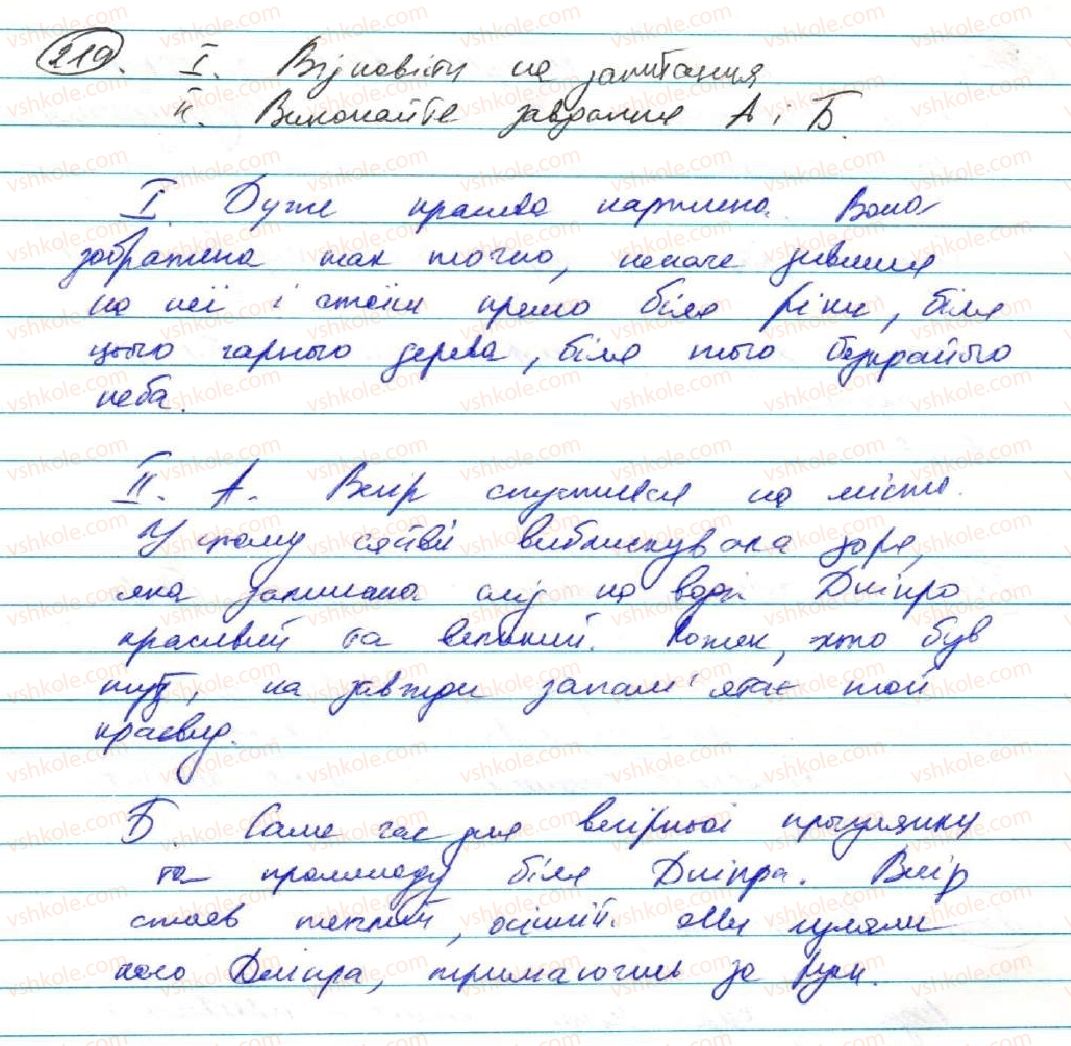 219. I. Відповісти на запитання
II. Виконайте завдання А і Б.
I. Дуже красива картина. Вона
зображена так точно, неначе дивишся
на неї і стоїш прямо біля ріки, біля
цього гарного дерева, біля того безкрайого
неба.
II. А. Вечір спустився на місто.
У цьому сяйві виблискувала зоря,
яка залишала слід на воді. Дніпро
красивий та великий. Кожен, хто був
тут, на завжди запам'ятає той
краєвид.
Б. Саме час для вечірньої прогулянки
та променаду біля Дніпра. Вечір
стояв теплий, осінній. Ми гуляли
коло Дніпра, тримаючись за руки.